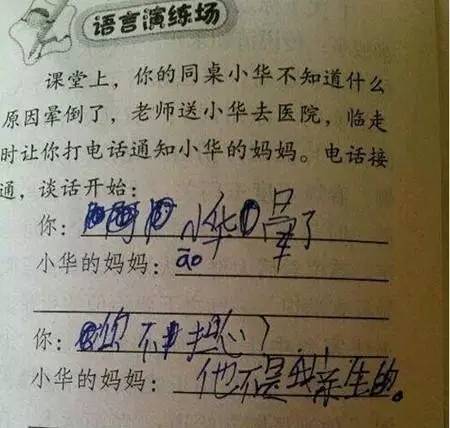 语言演练场
课堂上,你的同桌小华不知道什么
原因晕倒了,老师送小华去医院,临走
时让你打电话通知小华的妈妈。电话接
通,谈话开始:
你:小华晕了
小华的妈妈:āo
你:你不担心?
小华的妈妈:他不是我亲生的。